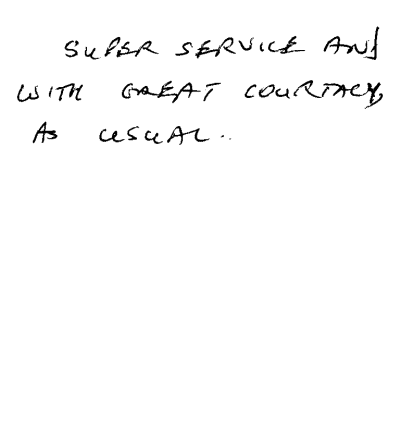 SUPER SERVICE AND
WITH GREAT COURTACY,
AS USUAL..